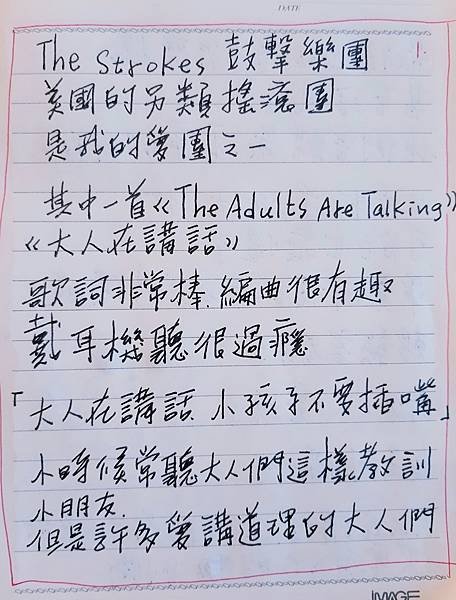 DATE
1.
The Strokes 鼓擊樂團
美國的另類搖滾團
是我的愛團之一
其中一首《The Adults Are Talking》
《大人在講話》
歌詞非常棒.編曲很有趣
戴耳機聽很過癮
「大人在講話.小孩子不要插嘴」
小時候常聽大人們這樣教訓
小朋友.
但是許多愛講道理的大人們
IMAGE